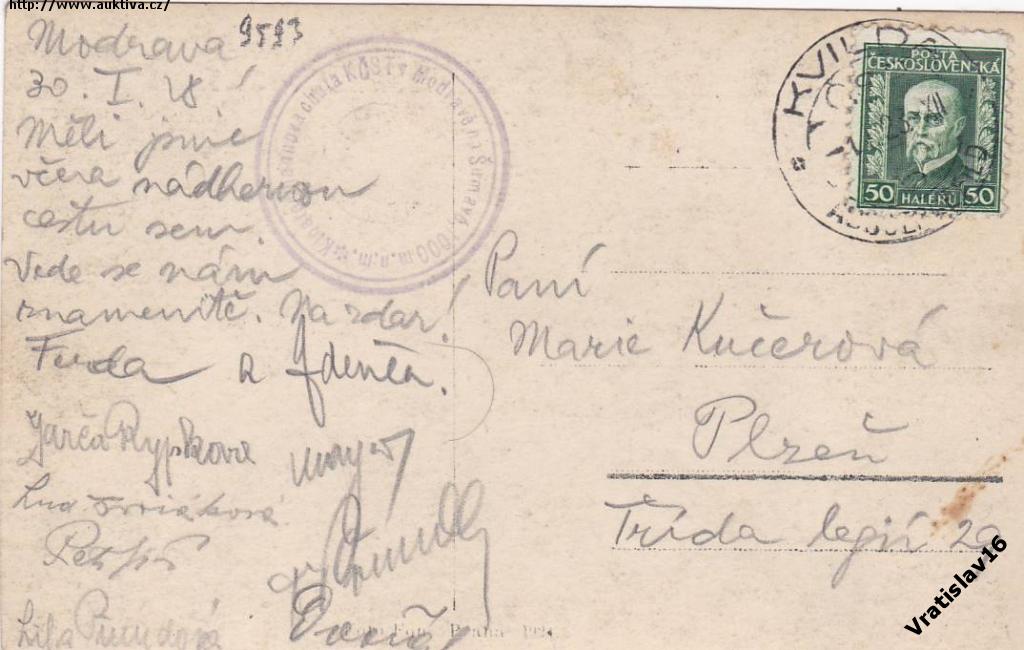 http://www.auktiva.cz/
Modrava
9593
30. I. 28.
Měli jsme
včera nádhernou
cestu sem.
Vede se nám
znamenitě. Na zdar!
Ferda a Zdenča.
Jarča Rypkova
mayer
Petr
Lída
Klostermannova chata KČST v Modravě na Šumavě 1000 m.n.m.
KVILDA
POŠTA
ČESKOSLOVENSKÁ
50 HALÉŘŮ 50
Paní
Marie Kučerová
Plzeň
Třída legií 20
Praha
Vratislav16